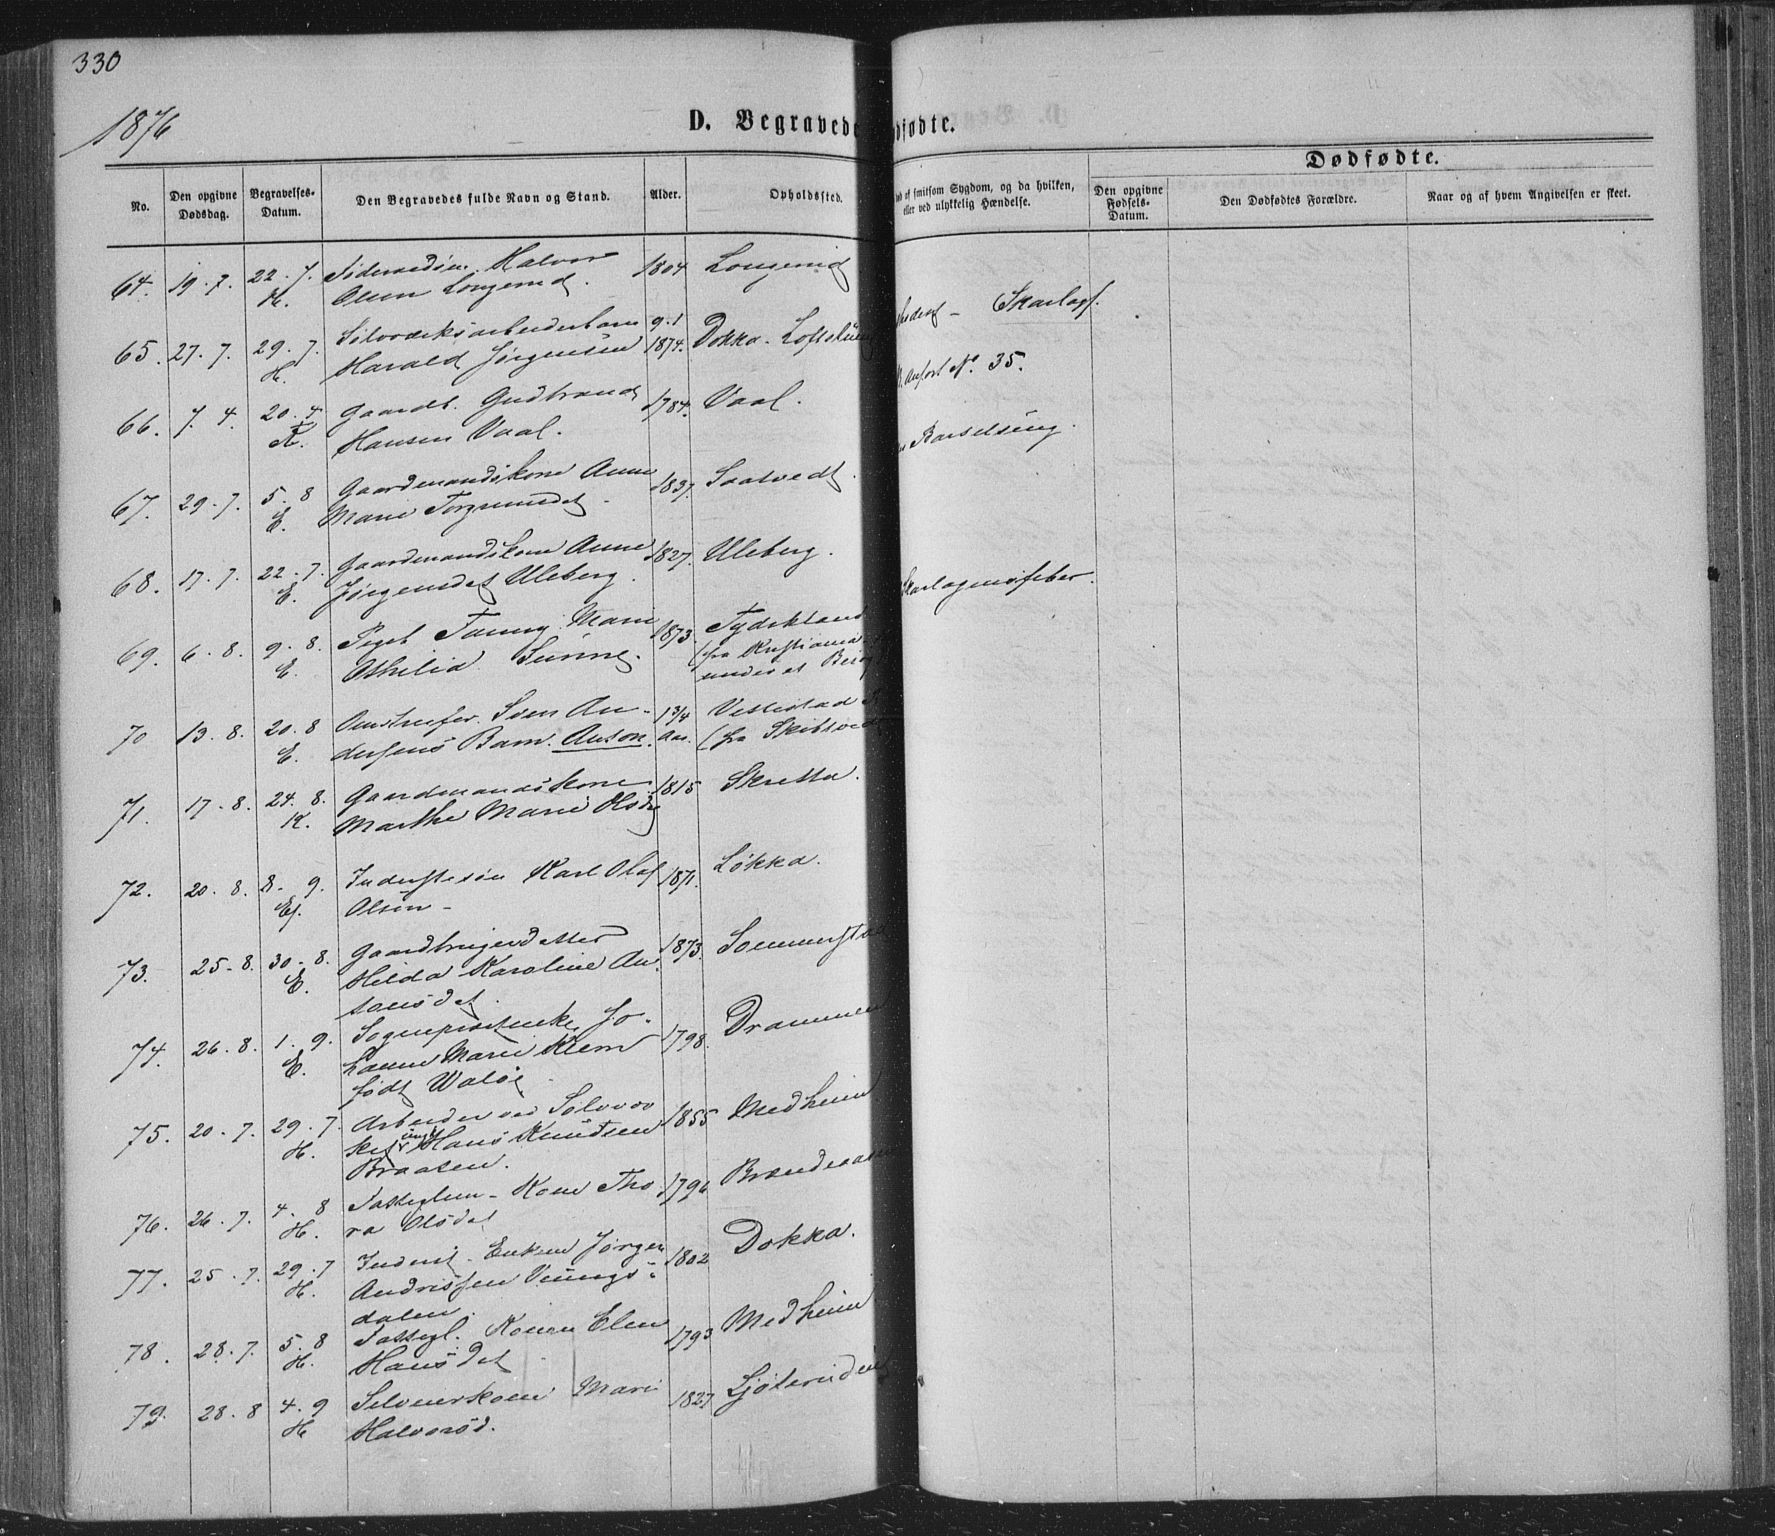 330
1876
D. Begravede
dfødte.
Dødfødte.
No.
Den opgivne Dødsdag.
Begravelses-Datum.
Den Begravedes fulde Navn og Stand.
Alder.
Opholdssted.
af smitsom Sygdom, og da hvilken,
eller ved ulykkelig Hændelse.
Den opgivne Fødsels-Datum.
Den Dødfødtes Forældre.
Naar og af hvem Angivelsen er skeet.
64. 19. 7. 22. 7. Halvor 1804 Longerud
H. Olsen Longerud.
Skarlagf.
65. 27. 7. 29. 7. Sølvværksarbeiderbarn 9.1 Dokka -
H. Harald Jørgensen 1874.
anført No. 35.
66. 7. 4. 20. 4 Gaardb. Gudbrand 1784. Vaal.
K. Hansen Vaal.
Barselseng.
67. 29. 7. 5. 8 Gaardmandskone Anne 1837. Saatvedt.
E. Marie
68. 17. 7. 22. 7. Gaardmandskone Anne 1827. Uleberg.
E. Jørgensdat Uleberg.
Skarlagensfeber.
69. 6. 8. 9. 8. Pigeb. Fanny Marie 1873. Tydskland
E. Othilia (fra Kristiania
70 13. 8. 20. 8 Sven An- 1 3/4
E. dersens Barn. Anton. Aar. (fra Skibtved
71. 17. 8. 24. 8. Gaardmandskone 1815 Skretta.
K. Marthe Marie Olsdt
72. 20. 8. 8. 9. Inderstesøn Karl Olaf 1871. Løkka.
Ef. Olsen -
73. 25. 8. 30. 8. Gaardbrugerdatter 1873. Sommerstad
E. Helda Karoline An-
tonsdat.
74. 26. 8. 1. 9. Sogneprestenke Jo- 1798. Drammen
E. hanne Marie Klem
født Waløe
75. 20. 7. 29. 7. Arbeider ved Sølvvær 1855 Medheim
H. ket ungk. Hans Knudsen
Braaten.
76. 26. 7. 4. 8 Fattiglem - Kone Tho 1796
H. ra Olsdat
77. 25. 7. 29. 7 Inderst. Enkem Jørgen 1802 Dokka.
H. Andrissen
dalen.
78. 28. 7. 5. 8 Fattigl. Konen Elen 1793 Medheim
H. Hansdat
79. 28. 8 4. 9 Mari 1827
H Halvorsd.